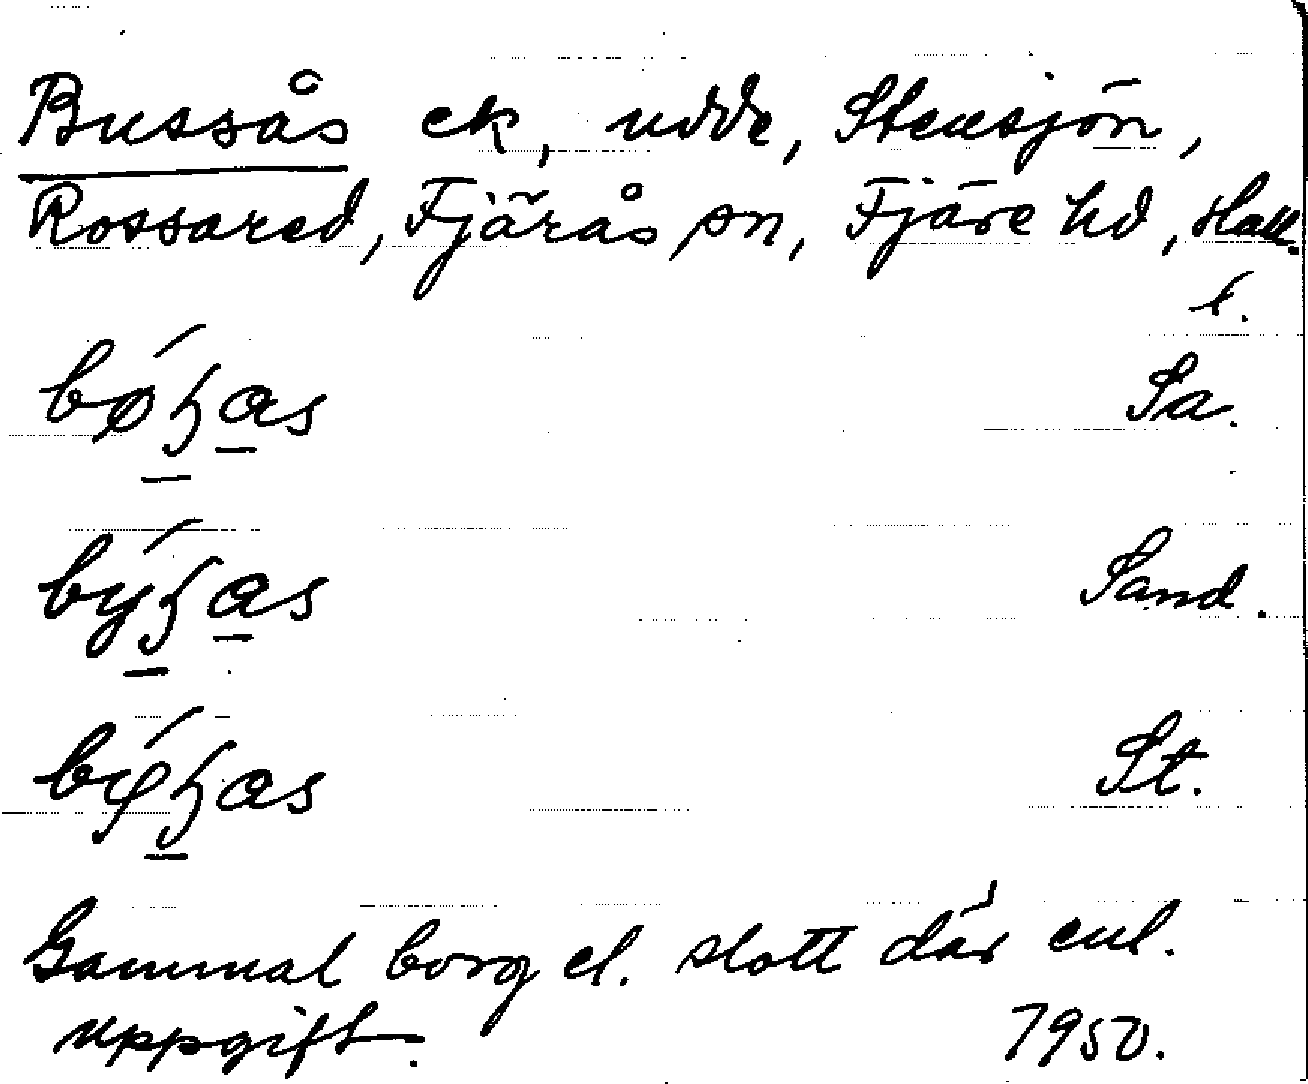 Bussås ek, udde, Stensjön,
Rossared, Fjärås sn, Fjäre hd, Hall.
l.
Sa.
Sand.
St.
Gammal borg el. slott där enl.
uppgift. 1950.